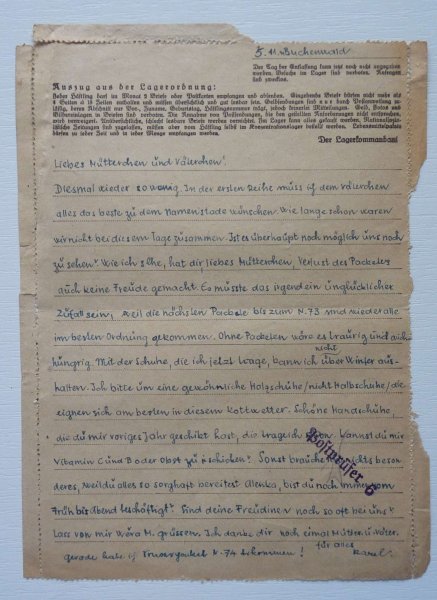 5. 11. Buchenwald
Der Tag der Entlassung kann jetzt noch nicht angegeben
werden. Besuche im Lager sind verboten. Anfragen
sind zwecklos.
Auszug aus der Lagerordnung:
Jeder Häftling darf im Monat 2 Briefe oder Postkarten empfangen und absenden. Eingehende Briefe dürfen nicht mehr als
4 Seiten à 15 Zeilen enthalten und müssen übersichtlich und gut lesbar sein. Geldsendungen sind nur durch Postanweisung zu-
lässig, deren Abschnitt nur Vor-, Zuname, Geburtstag, Häftlingsnummer trägt, jedoch keinerlei Mitteilungen. Geld, Fotos und
Bildereinlagen in Briefen sind verboten. Die Annahme von Postsendungen, die den gestellten Anforderungen nicht entsprechen,
wird verweigert. Unübersichtliche, schlecht lesbare Briefe werden vernichtet. Im Lager kann alles gekauft werden. Nationalsozia-
listische Zeitungen sind zugelassen, müssen aber vom Häftling selbst im Konzentrationslager bestellt werden. Lebensmittelpakete
dürfen zu jeder Zeit und in jeder Menge empfangen werden.
Der Lagerkommandant
Liebes Mütterchen und Väterchen!
Diesmal wieder so wenig. In der ersten Reihe muss ich dem Väterchen
alles das beste zu dem Namenstade wünschen. Wie lange schon waren
wir nicht bei diesem Tage zusammen. Ist es überhaupt noch möglich uns noch
zu sehen? Wie ich sehe, hat dir, liebes Mütterchen, Verlust des Packeles
auch keine Freude gemacht. Es müsste das irgendein unglücklicher
Zufall sein, weil die nächsten Packele bis zum N. 73 sind wieder alle
im besten Ordnung gekommen. Ohne Packelen wäre es traurig und
nicht
hungrig. Mit der Schuhe, die ich jetzt trage, kann ich über Winter aus-
halten. Ich bitte um eine gewöhnliche Holzschuhe /nicht Halbschuhe/ die
eignen sich am besten in diesem Kottwetter. Schöne Handschuhe,
die du mir voriges Jahr geschikt hast, die trage ich schon. Kannst du mir
Vitamin C und B oder Obst zu schicken? Sonst brauche ich nichts beson-
deres, weil du alles so sorghaft bereitest. Alenka, bist du noch immer vom
Früh bis Abend beschäftigt? Sind deine Freudinen noch so oft bei uns?
Lass von mir Wěra M. grüssen. Ich danke dir noch einmal Mütter. u. Väter.
für alles
gerade habe ich N. 74 bekommen! Karel
Postprüfer 6